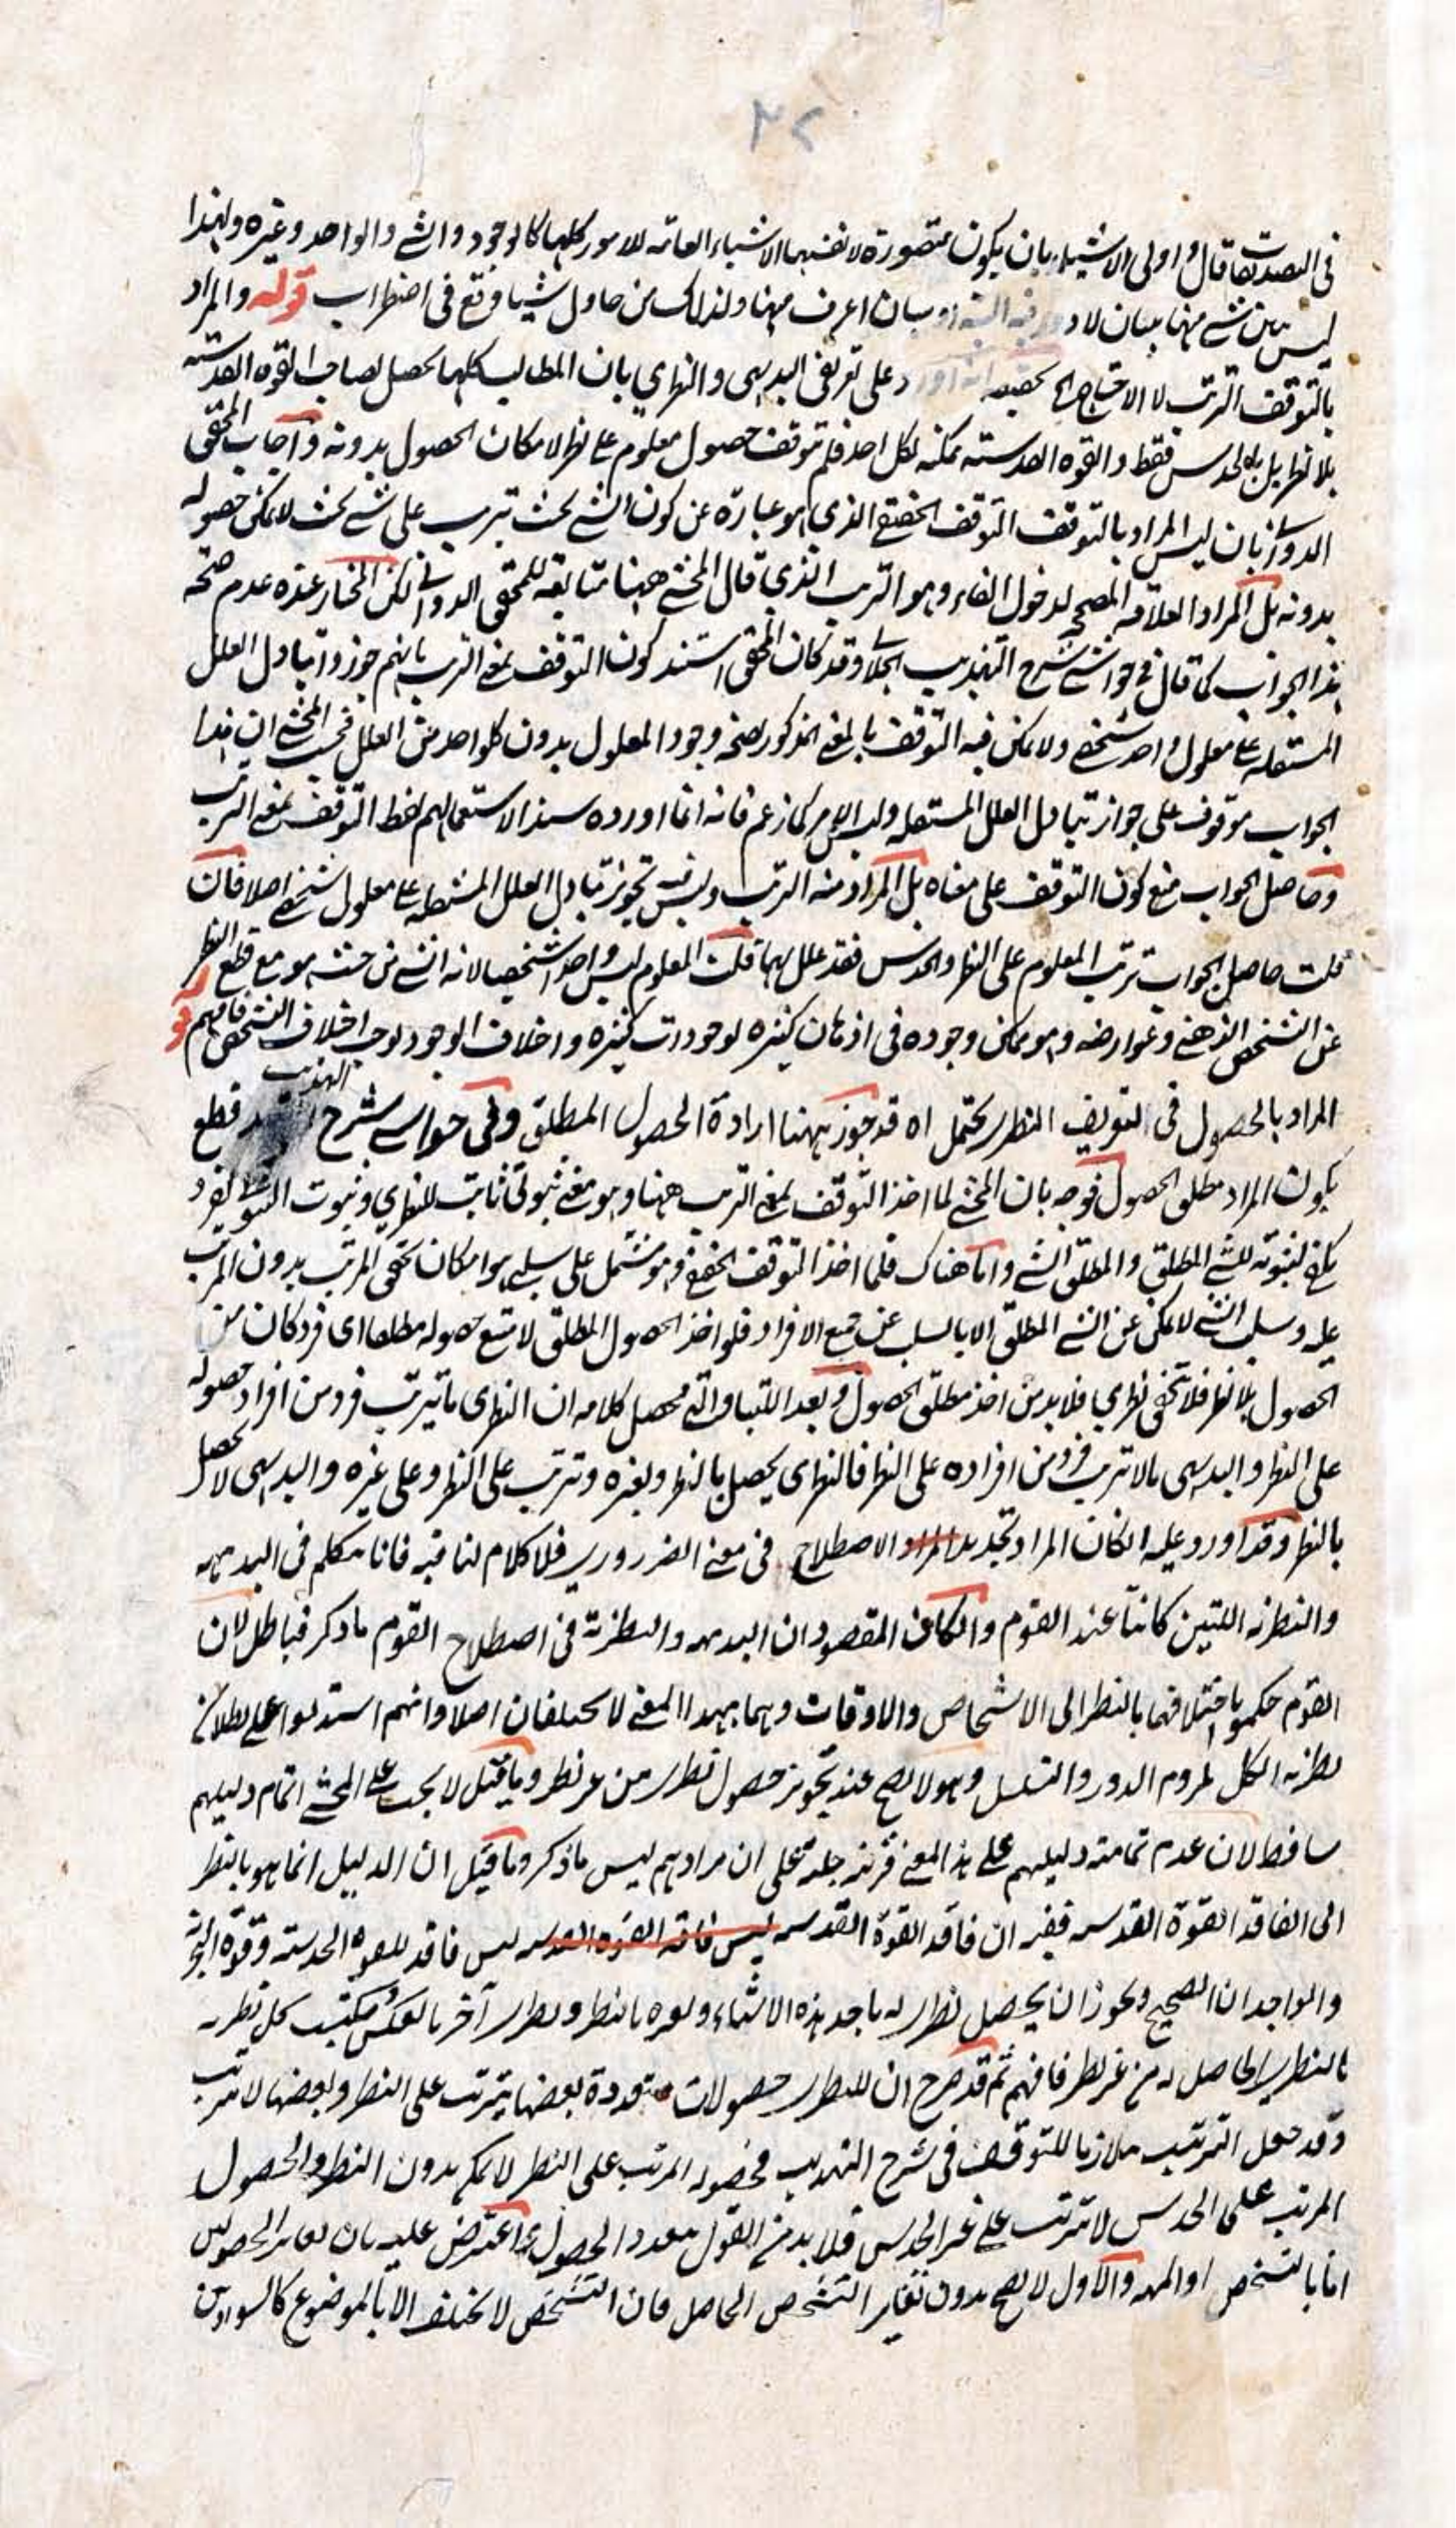 ٣٢
في التصديقات قال واولى الاشياء بان يكون متصورة لانفسها الاشياء العامة للامور كلها كالوجود والشئ والواحد وغيره ولهذا
ليس شئ منها ببيان لا دور فيه البتة او ببيان اعرف منها ولذلك من حاول شيئا وقع في اضطراب قوله والمراد
بالتوقف الترتب لا الاحتياج اورد على تعريفي البديهي والنظري بان المطالب كلها يحصل لصاحب القوة القدسية
بلا نظر بل بالحدس فقط والقوة القدسية ممكنة لكل احد فلم يتوقف حصول معلوم على نظر لامكان الحصول بدونه واجاب المحقق
الدواني بان ليس المراد بالتوقف التوقف الحقيقي الذي هو عبارة عن كون الشئ بحيث يترتب على شئ بحيث لا يمكن حصوله
بدونه بل المراد العلاقة المصححة لدخول الفاء وهو الترتب الذي قال المحشي ههنا متابعة للمحقق الدواني لكن المختار عنده عدم صحة
هذا الجواب كما قال في حواشي شرح التهذيب الجلالي وقد كان المحقق استند كون التوقف بمعنى الترتب بانهم جوزوا تبادل العلل
المستقلة على معلول واحد شخصي ولا يمكن فيه التوقف بالمعنى المذكور لصحة وجود المعلول بدون كل واحد من العلل فحسب المحشي ان هذا
الجواب موقوف على جواز تبادل العلل المستقلة وليس الامر كما زعم فانه انما اورده سندا لاستعمالهم لفظ التوقف بمعنى الترتب
وحاصل الجواب منع كون التوقف على معناه بل المراد منه الترتب وليس فيه تجويز تبادل العلل المستقلة على معلول شخصي اصلا فان
قلت حاصل الجواب ترتب المعلوم على النظر والحدس فقد علل بهما قلت المعلوم ليس واحدا شخصيا لانه الشئ من حيث هو مع قطع النظر
عن التشخص الذهني وعوارضه وهو ممكن وجوده في اذهان كثيرة لوجودات كثيرة واختلاف الوجود يوجب اختلاف التشخص فافهم قو
المراد بالحصول في التعريف النظري يحتمل اه قد جوز ههنا ارادة الحصول المطلق وفي حواشي شرح التهذيب قطع
بكون المراد مطلق الحصول فوجه بان المحشي لما اخذ التوقف بمعنى الترتب ههنا وهو معنى ثبوتي ثابت للنظري وثبوت الشئ لفرد
يكفي لثبوته للشئ المطلق والمطلق الشئ واما هناك فلما اخذ التوقف الحقيقي وهو مشتمل على سلب هو امكان تحقق المرتب بدون المرتب
عليه وسلب الشئ لا يمكن عن الشئ المطلق الا بالسلب عن جميع الافراد فلو اخذ الحصول المطلق لا متنع حصوله مطلقا اى فرد كان من
الحصول بلا نظر فلا تحقق نظري فلا بد من اخذ مطلق الحصول وبعد اللتيا والتي محصل كلامه ان النظري ما يترتب فرد من افراد حصوله
على النظر والبديهي ما لا يترتب فرد من افراده على النظر فالنظري يحصل بالنظر وبغيره وترتب على النظر وعلى غيره والبديهي لا يحصل
بالنظر وقد اورد عليه ان كان المراد تجديد الاصطلاح في معنى الضروري فلا كلام لنا فيه فانا نتكلم في البديهية
والنظرية اللتين كانتا عند القوم وان كان المقصود ان البديهية والنظرية في اصطلاح القوم ما ذكر فباطل لان
القوم حكموا باختلافهما بالنظر الى الاشخاص والاوقات وهما بهذا المعنى لا يختلفان اصلا وانهم استدلوا على بطلان
نظرية الكل بلزوم الدور والتسلسل وهو لا يصح عند تجويز حصول نظري من غير نظر وما قيل لا يجب على المحشي اتمام دليلهم
ساقط لان عدم تمامية دليلهم على هذا المعنى قرينة جلية على ان مرادهم ليس ما ذكر وما قيل ان الدليل انما هو بالنظر
الى الفاقد القوة القدسية ففيه ان فاقد القوة القدسية ليس فاقد القوة القدسية ليس فاقد للقوة الحدسية وقوة التجربة
والواجدان الصحيح ويجوز ان يحصل نظري له باحد هذه الاشياء ولغيره بالنظر ونظري آخر بالعكس فيكتسب كل نظرية
بالنظري الحاصل له من غير نظر فافهم ثم قد صرح ان للنظري حصولات متعددة بعضها يترتب على النظر وبعضها لا يترتب
وقد جعل الترتيب ملازما للتوقف في شرح التهذيب فحصوله المرتب على النظر لا يمكن بدون النظر والحصول
المرتب على الحدس لا يترتب على غير الحدس فلا بد من القول بتعدد الحصول واعترض عليه بان تغاير الحصولين
اما بالتشخص او المهية والاول لا يصح بدون تغاير التشخص الحاصل فان التشخص لا يختلف الا بالموضوع كالسوادين